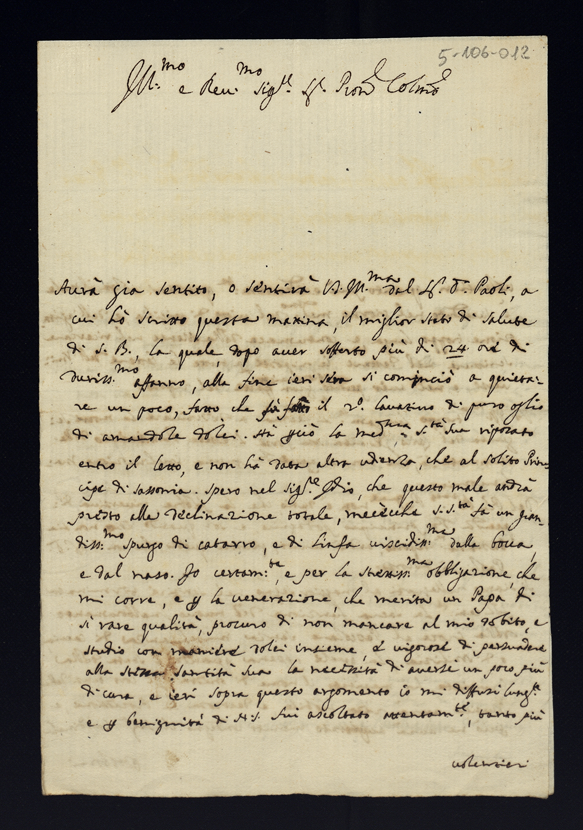 5-106-012
Ill.mo e Rev.mo Sig.r Sr. Pron Colmo
Aurà gia sentito, o sentirà V.S. Ill.ma dal Sr. Dr. Paoli, a
cui hò scritto questa matina, il miglior stato di salute
di S. B., la quale, dopo auer sofferto più di 24 ore di
duriss.mo affanno, alla fine ieri sera si cominciò a quieta-
re un poco, fatto che fù il 2º. lauatiuo di puro oglio
di amandole dolci. Stà però la med.ma S.tà Sua riposato
entro il letto, e non hà data altra udienza, che al solito Prin-
cipe di Sassonia. Spero nel Sig.re Idio, che questo male andrà
presto alla declinazione totale, mentre S. S.tà fà un gran-
diss.mo spurgo di catarro, e di linfa viscidiss.ma dalla bocca,
e dal naso. Io certam.te, e per la strettiss.ma obbligazione, che
mi corre, e p la venerazione, che merita un Papa di
sì rare qualità, procuro di non mancare al mio dobito, e
studio con maniere dolci insieme, e vigorose di persuadere
alla stessa Santità Sua la necessità di auersi un poco più
di cura, e ieri sopra questo argomento io mi diffusi lung.te
e p benignità di N.S. fui ascoltato attentam.te, tanto più
uolentieri